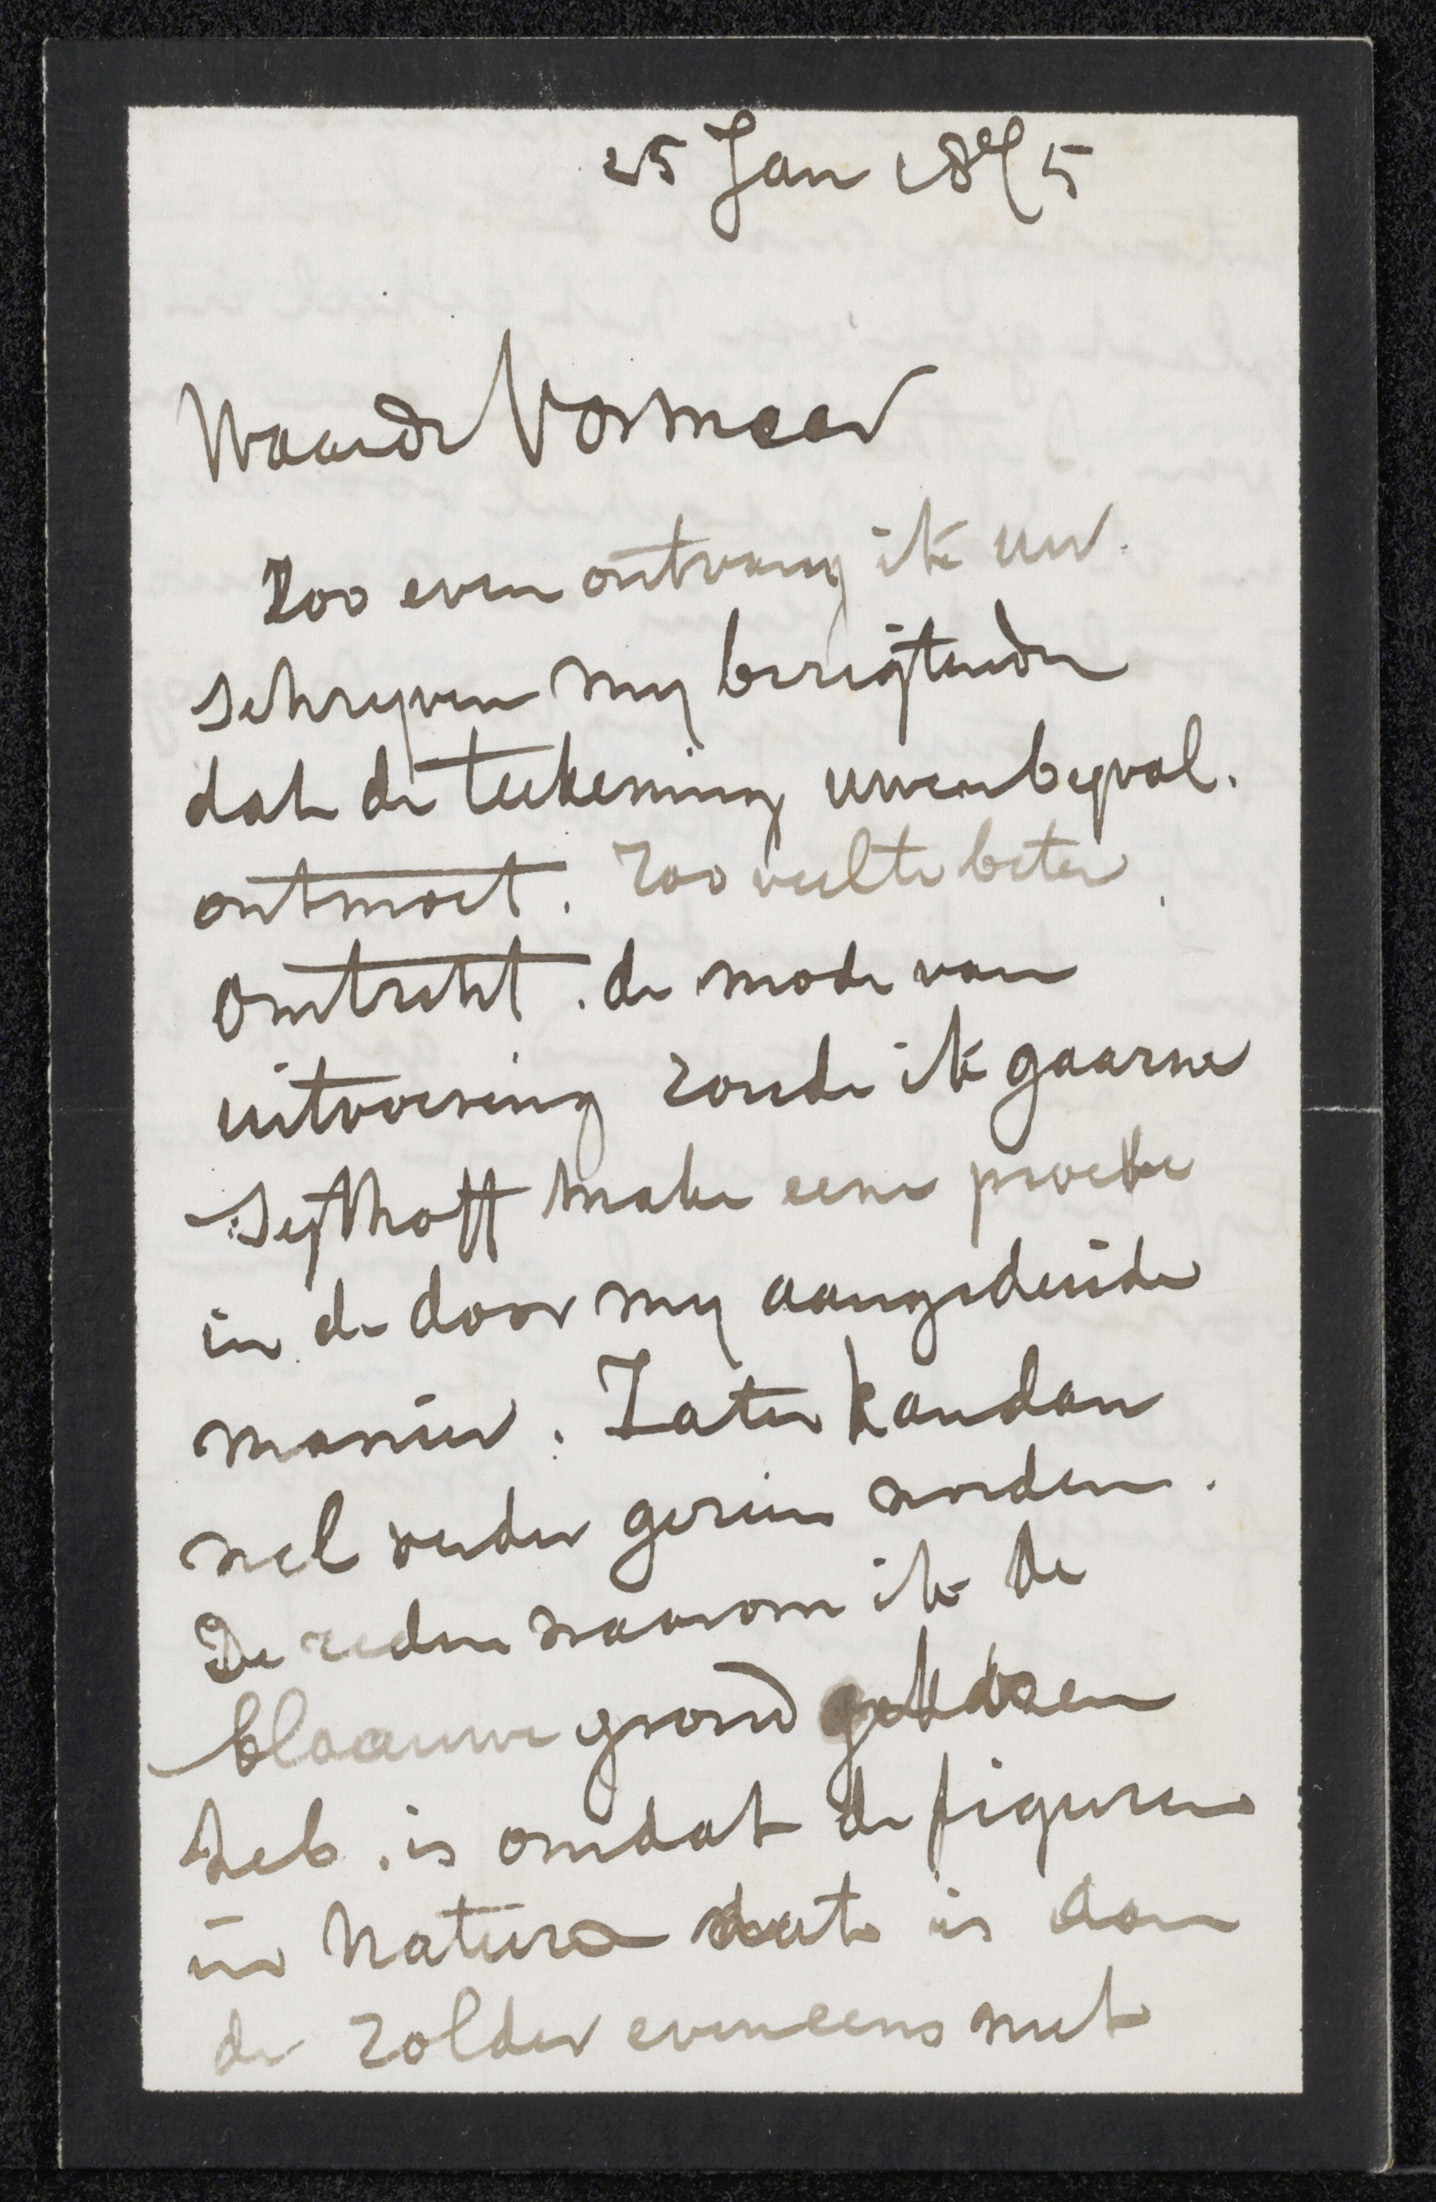 25 Jan 1875
Waarde Vosmaer
Zoo even ontvang ik uw
schryven my berigtende
dat de teekening uwen byval
ontmoet. Zoo veel te beter
Omtrent de mode van
uitvoering zoude ik gaarne
Sythoff make eene proeve
in de door my aangeduide
manier. Later kan dan
wel verder gezien worden.
De reden waarom ik de
blaauwe grond gekozen
heb, is omdat de figuren
in natura dat is aan
de zolder eveneens met